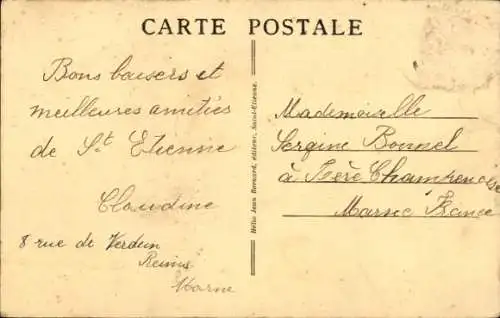 CARTE POSTALE
Bons baisers et
meilleures amitiés
de St Etienne
Claudine
8 rue de Verdun
Reims
Marne
Hélio Jean Bernard, éditeur, Saint-Etienne.
Mademoiselle
Sergine Bonnel
à Fère Champenoise
Marne France